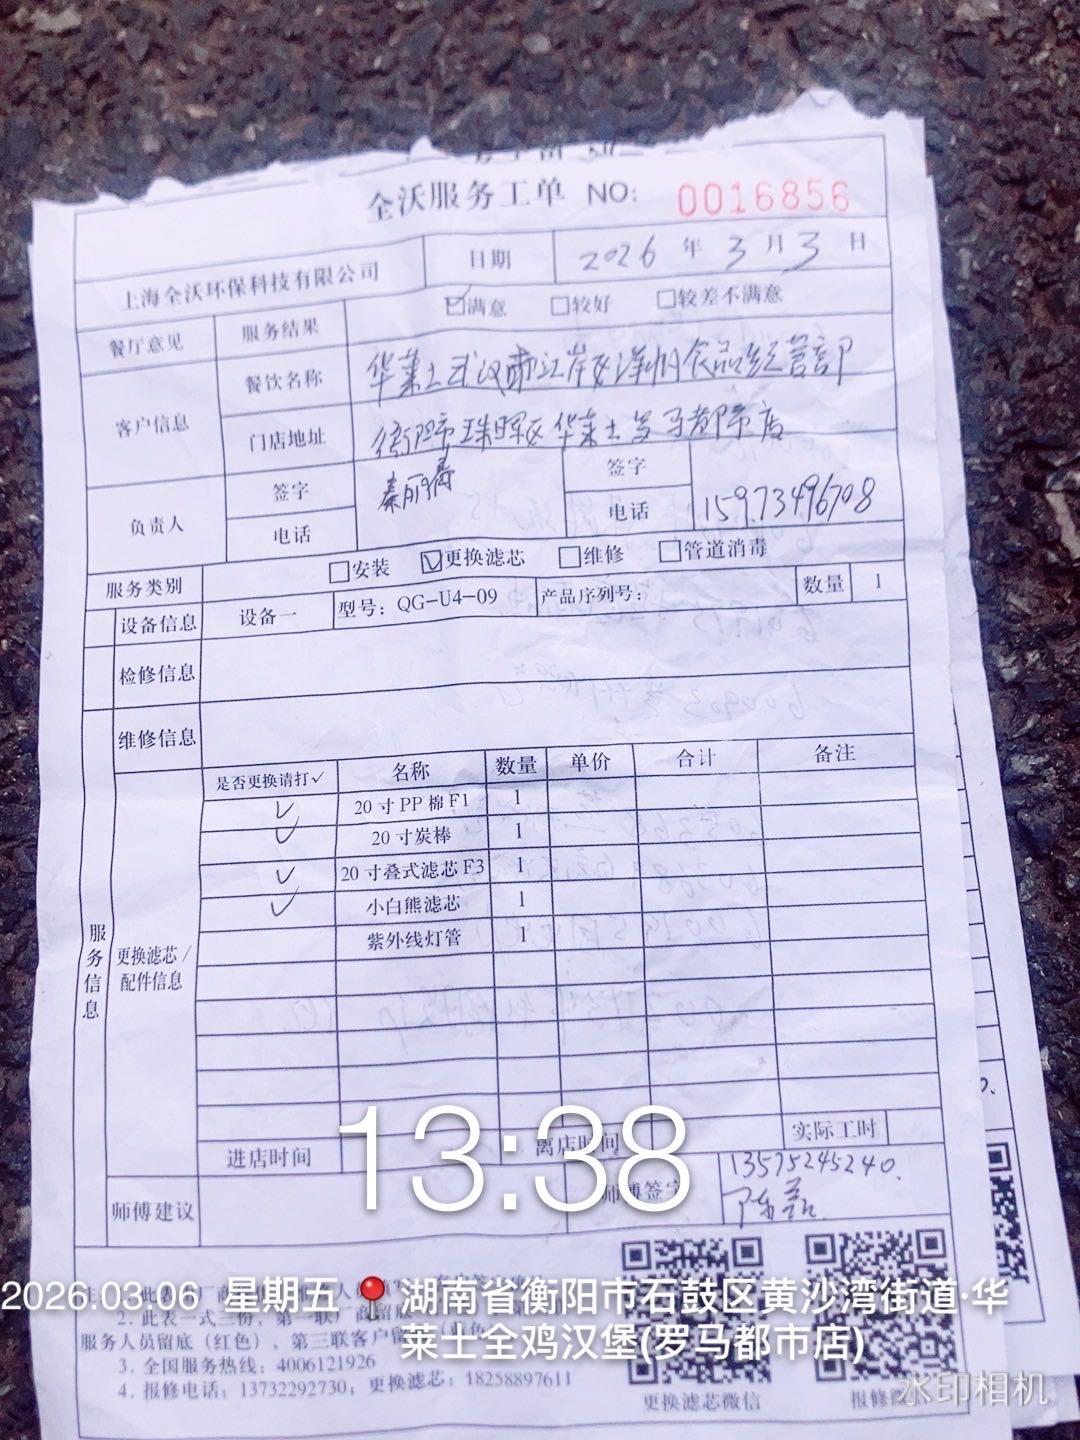 全沃服务工单 NO: 0016856
上海全沃环保科技有限公司 日期 2026 年 3 月 3 日
餐厅意见 服务结果 ☑满意 □较好 □较差不满意
客户信息 餐饮名称 华莱士武汉市江岸区洋帆食品经营部
门店地址 衡阳市珠晖区华莱士罗马都市店
负责人 签字 秦丽 签字
电话 电话 15973496708
服务类别 □安装 ☑更换滤芯 □维修 □管道消毒
设备信息 设备一 型号：QG-U4-09 产品序列号： 数量 1
检修信息
维修信息
服务信息
更换滤芯/配件信息
是否更换请打✓ 名称 数量 单价 合计 备注
✓ 20寸PP棉F1 1
✓ 20寸炭棒 1
✓ 20寸叠式滤芯F3 1
✓ 小白熊滤芯 1
紫外线灯管 1
13:38
进店时间 离店时间 实际工时
师傅建议 师傅签字 13575245240.
2026.03.06 星期五 湖南省衡阳市石鼓区黄沙湾街道·华
莱士全鸡汉堡(罗马都市店)
2. 此表一式三份，第一联厂商留底
服务人员留底（红色），第三联客户留
3. 全国服务热线：4006121926
4. 报修电话：13732292730，更换滤芯：18258897611
更换滤芯微信 报修微
水印相机